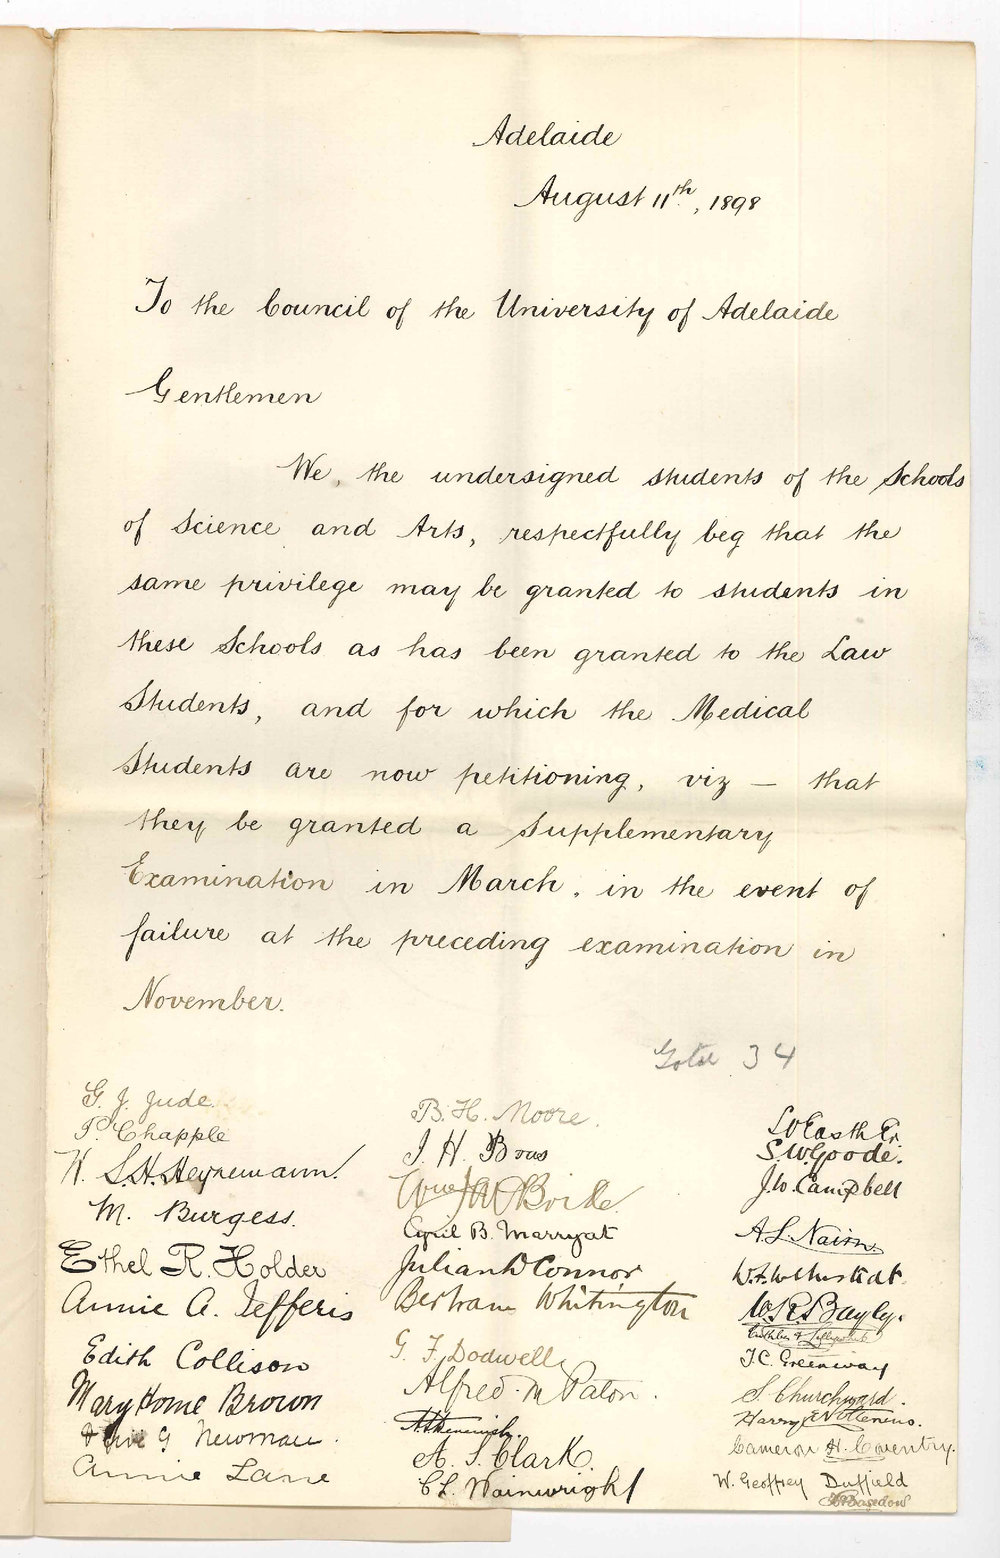 Adelaide
August 11th, 1898
To the Council of the University of Adelaide
Gentlemen
We, the undersigned students of the Schools
of Science and Arts, respectfully beg that the
same privilege may be granted to students in
these Schools as has been granted to the Law
Students, and for which the Medical
Students are now petitioning, viz — that
they be granted a Supplementary
Examination in March, in the event of
failure at the preceding examination in
November.
Total 34
G. J. Jude.
P. Chapple
H. S.H. Heynemann.
M. Burgess.
Ethel R. Holder
Annie A. Jefferis
Edith Collison
Mary Home Brown
G Newman.
Annie Lane
B. H. Moore.
J. H. Boas
Cyril B. Marryat
Julian D Connor
Bertram Whitington
G. F. Dodwell
Alfred. M Paton.
A. S. Clark.
C L. Wainwright
S.W. Goode.
J.W. Campbell
A.L. Nairn.
Bayly.
T.C. Greenway
S. Churchward.
Harry
Cameron H. Coventry.
W. Geoffrey Duffield
Basedow